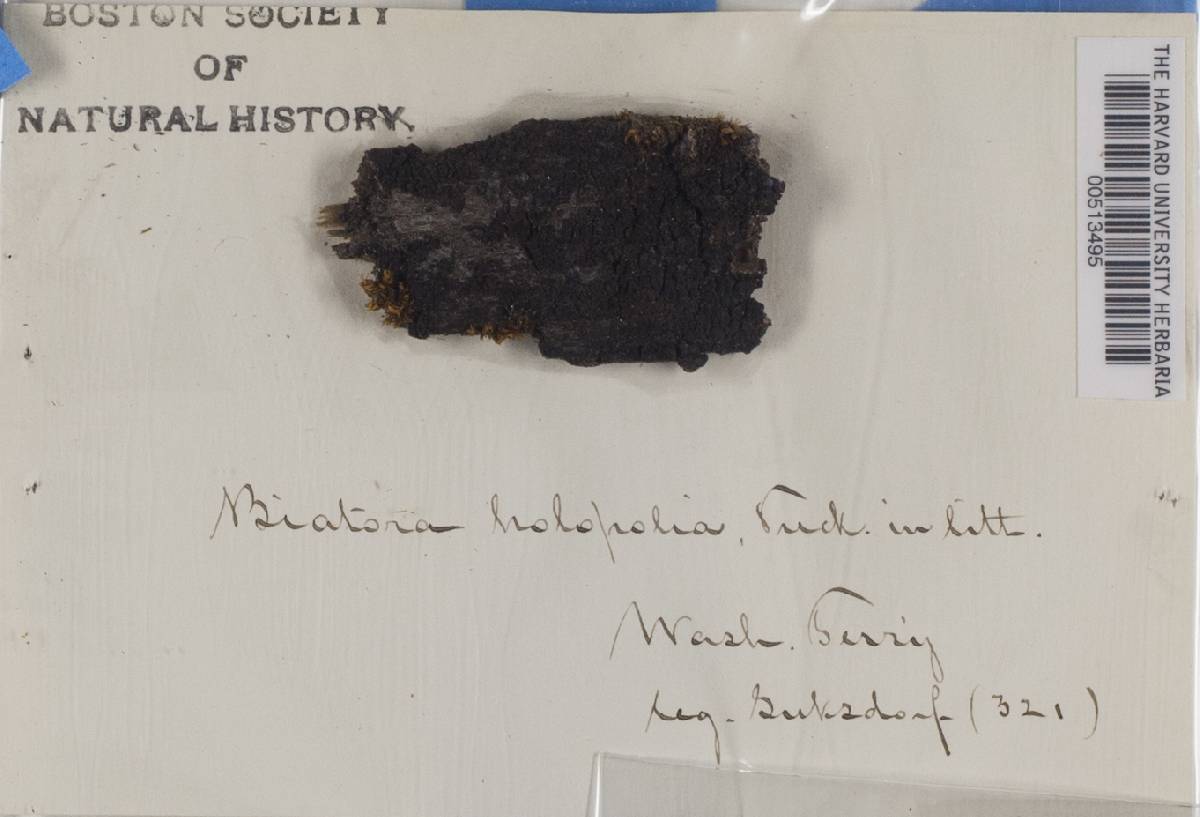 BOSTON SOCIETY
OF
NATURAL HISTORY.
THE HARVARD UNIVERSITY HERBARIA
00513495
Biatora holopolia, Tuck. in litt.
Wash. Terr'y
leg. Suksdorf (321)